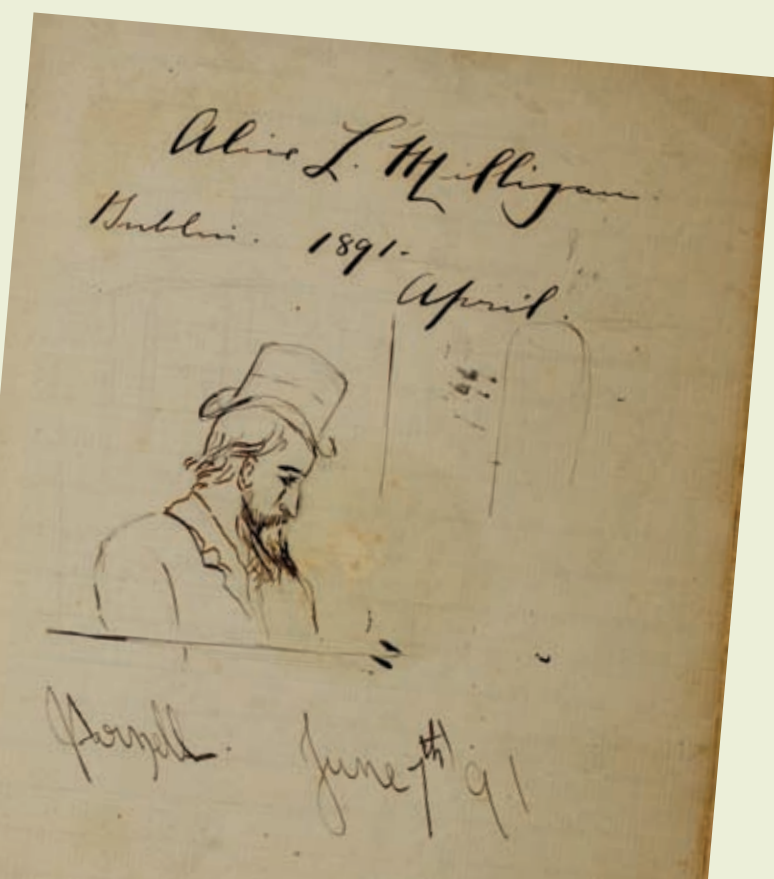 Alice L. Milligan.
Dublin. 1891.
April.
Parnell. June 7th 91